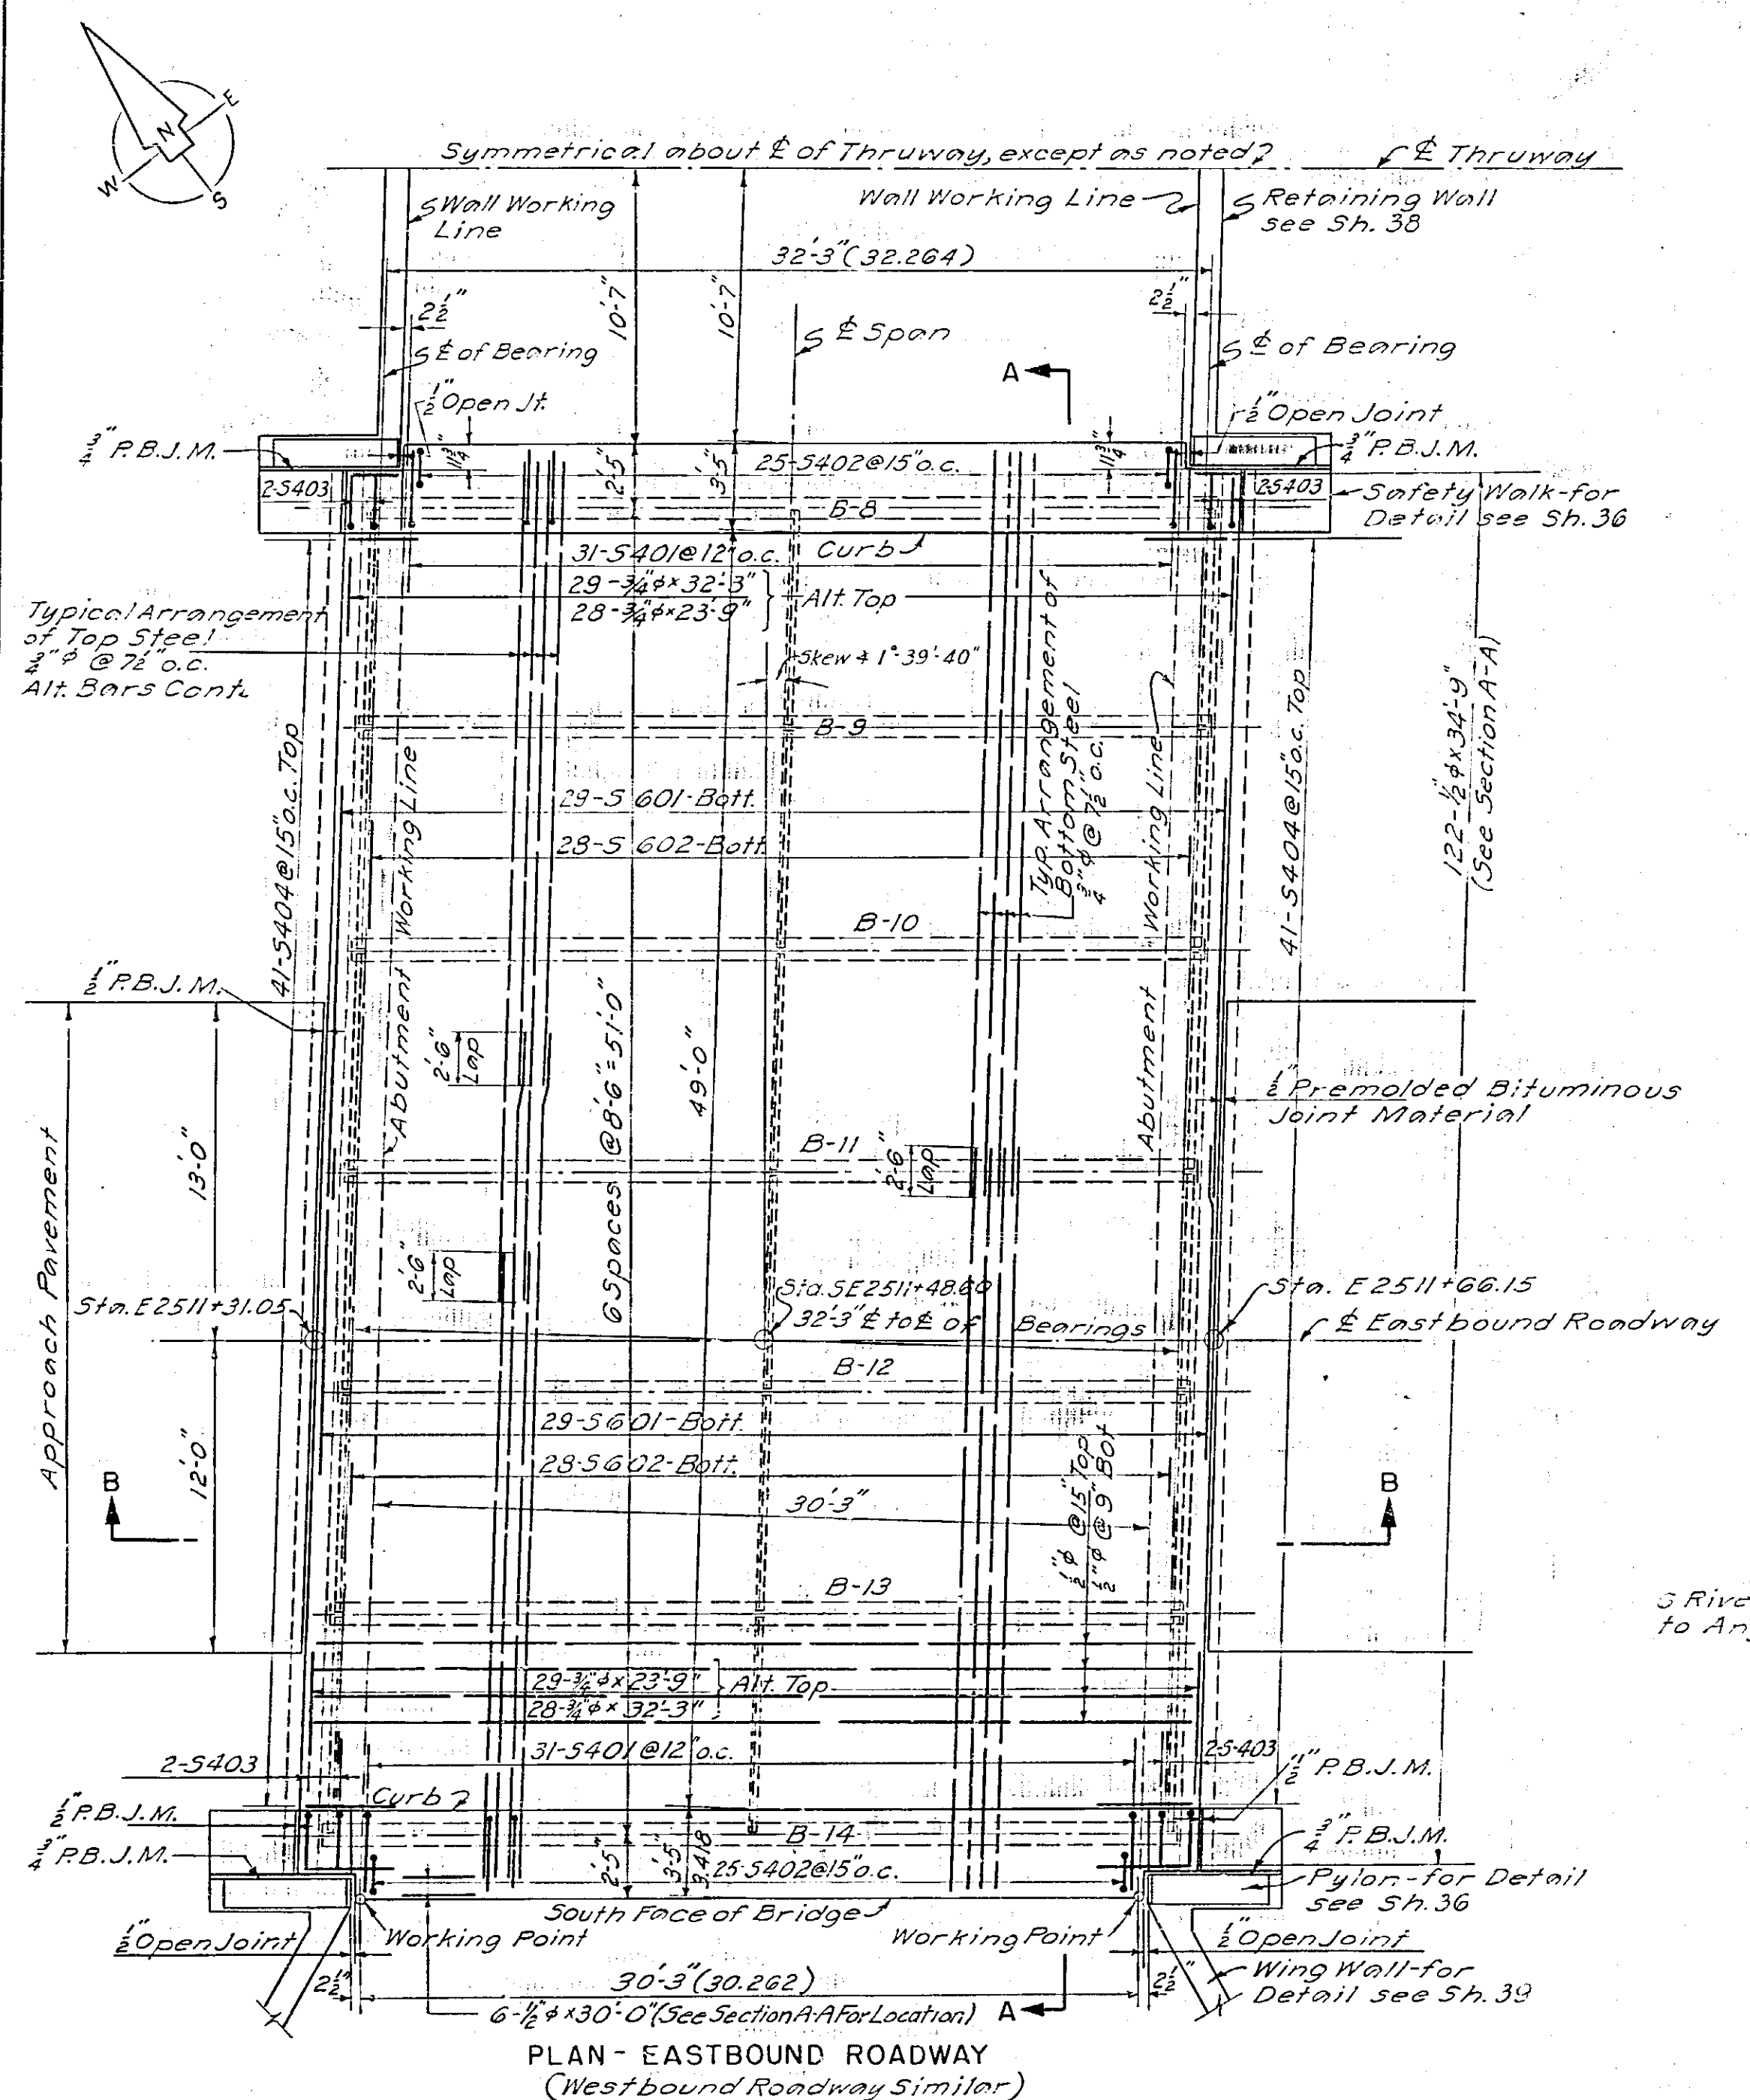 N
E
W
S
Symmetrical about ℄ of Thruway, except as noted
℄ Thruway
Wall Working
Line
Wall Working Line
Retaining Wall
see Sh. 38
32'-3" (32.264)
2½"
10'-7"
10'-7"
2½"
℄ Span
℄ of Bearing
℄ of Bearing
A
½" Open Jt.
½" Open Joint
¾" P.B.J.M.
11¾"
2'-5"
3'-5"
25-S402@15"o.c.
11¾"
¾" P.B.J.M.
2-S403
2S403
Safety Walk-for
Detail see Sh. 36
B-8
31-S401@12"o.c.
Curb
29-¾"φx32'-3"
28-¾"φx23'-9"
Alt. Top
Typical Arrangement
of Top Steel
¾"φ @ 7½" o.c.
Alt. Bars Cont.
Skew ∡ 1°-39'-40"
B-9
41-S404@15"o.c. Top
Abutment Working Line
29-S 601-Bott.
28-S 602-Bott.
Typ. Arrangement of
Bottom Steel
¾"φ @ 7½" o.c.
Abutment Working Line
41-S404@15"o.c. Top
122-½"φx34'-9"
(See Section A-A)
B-10
½" P.B.J.M.
2'-6"
Lap
6 Spaces @8'-6"=51'-0"
49'-0"
½" Premolded Bituminous
Joint Material
B-11
2'-6"
Lap
Approach Pavement
13'-0"
2'-6"
Lap
Sta. E2511+31.05
Sta. SE2511+48.60
32'-3" ℄ to ℄ of Bearings
Sta. E2511+66.15
℄ Eastbound Roadway
B-12
29-S601-Bott.
28-S602-Bott.
12'-0"
B
B
30'-3"
½"φ @15" Top
½"φ @ 9" Bot
B-13
S Rive
to An
29-¾"φx23'-9"
28-¾"φx32'-3"
Alt. Top
31-S401@12"o.c.
2-S403
2S-403
½" P.B.J.M.
Curb
½" P.B.J.M.
¾" P.B.J.M.
B-14
2'-5"
3'-5"
3.418
25-S402@15"o.c.
¾" P.B.J.M.
Pylon-for Detail
see Sh. 36
South Face of Bridge
½" Open Joint
Working Point
Working Point
½" Open Joint
Wing Wall-for
Detail see Sh. 39
2½"
30'-3" (30.262)
2½"
6-½"φx30'-0" (See Section A-A For Location)
A
PLAN - EASTBOUND ROADWAY
(Westbound Roadway Similar)